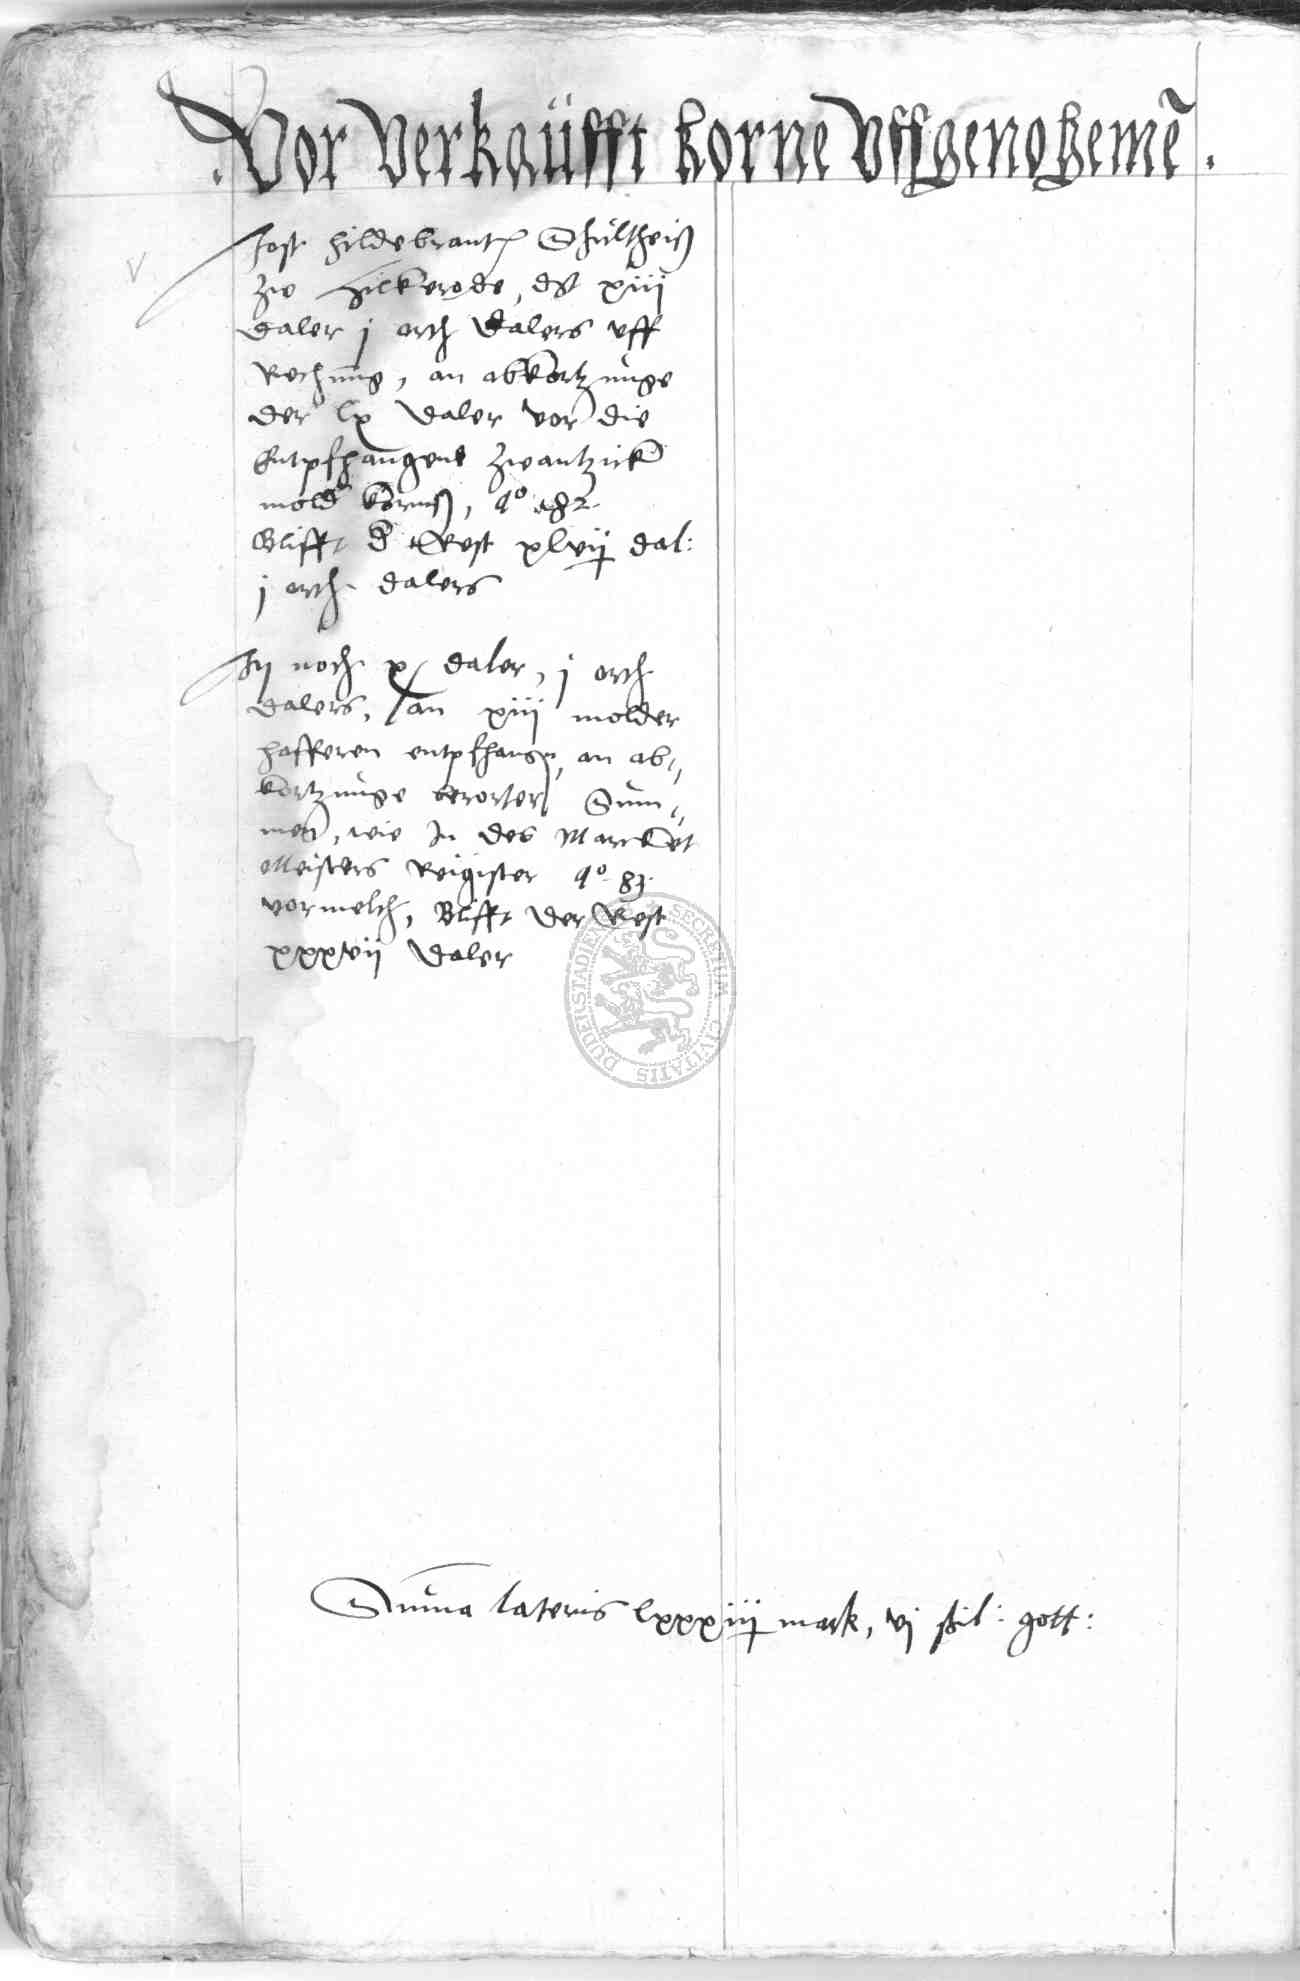 . Vor Verkaüfft korne Vffgenohemē .
Jost Hildebrant Schültheiß
zw Hilkerode, dt xiii
daler j orth dalers vff
Rechnüng, an abkortzünge
der lx daler vor die
Entpfhangene zwantzick
mold kornß, a° 82
Blifft d Rest xlvij dal:
j orth dalers
noch x daler, j orth
dalers, an xiij molder
hafferen entpfhangen, an ab„
kortzünge berorter Süm„
men, wie In des Marckt
Meisters Reigister a° 83
vormelth, Blifft der Rest
xxxvij daler
SECRETUM CIVITATIS DUDERSTADIENSIS
Süma lateris lxxxiij mark, vj ßil: gott: